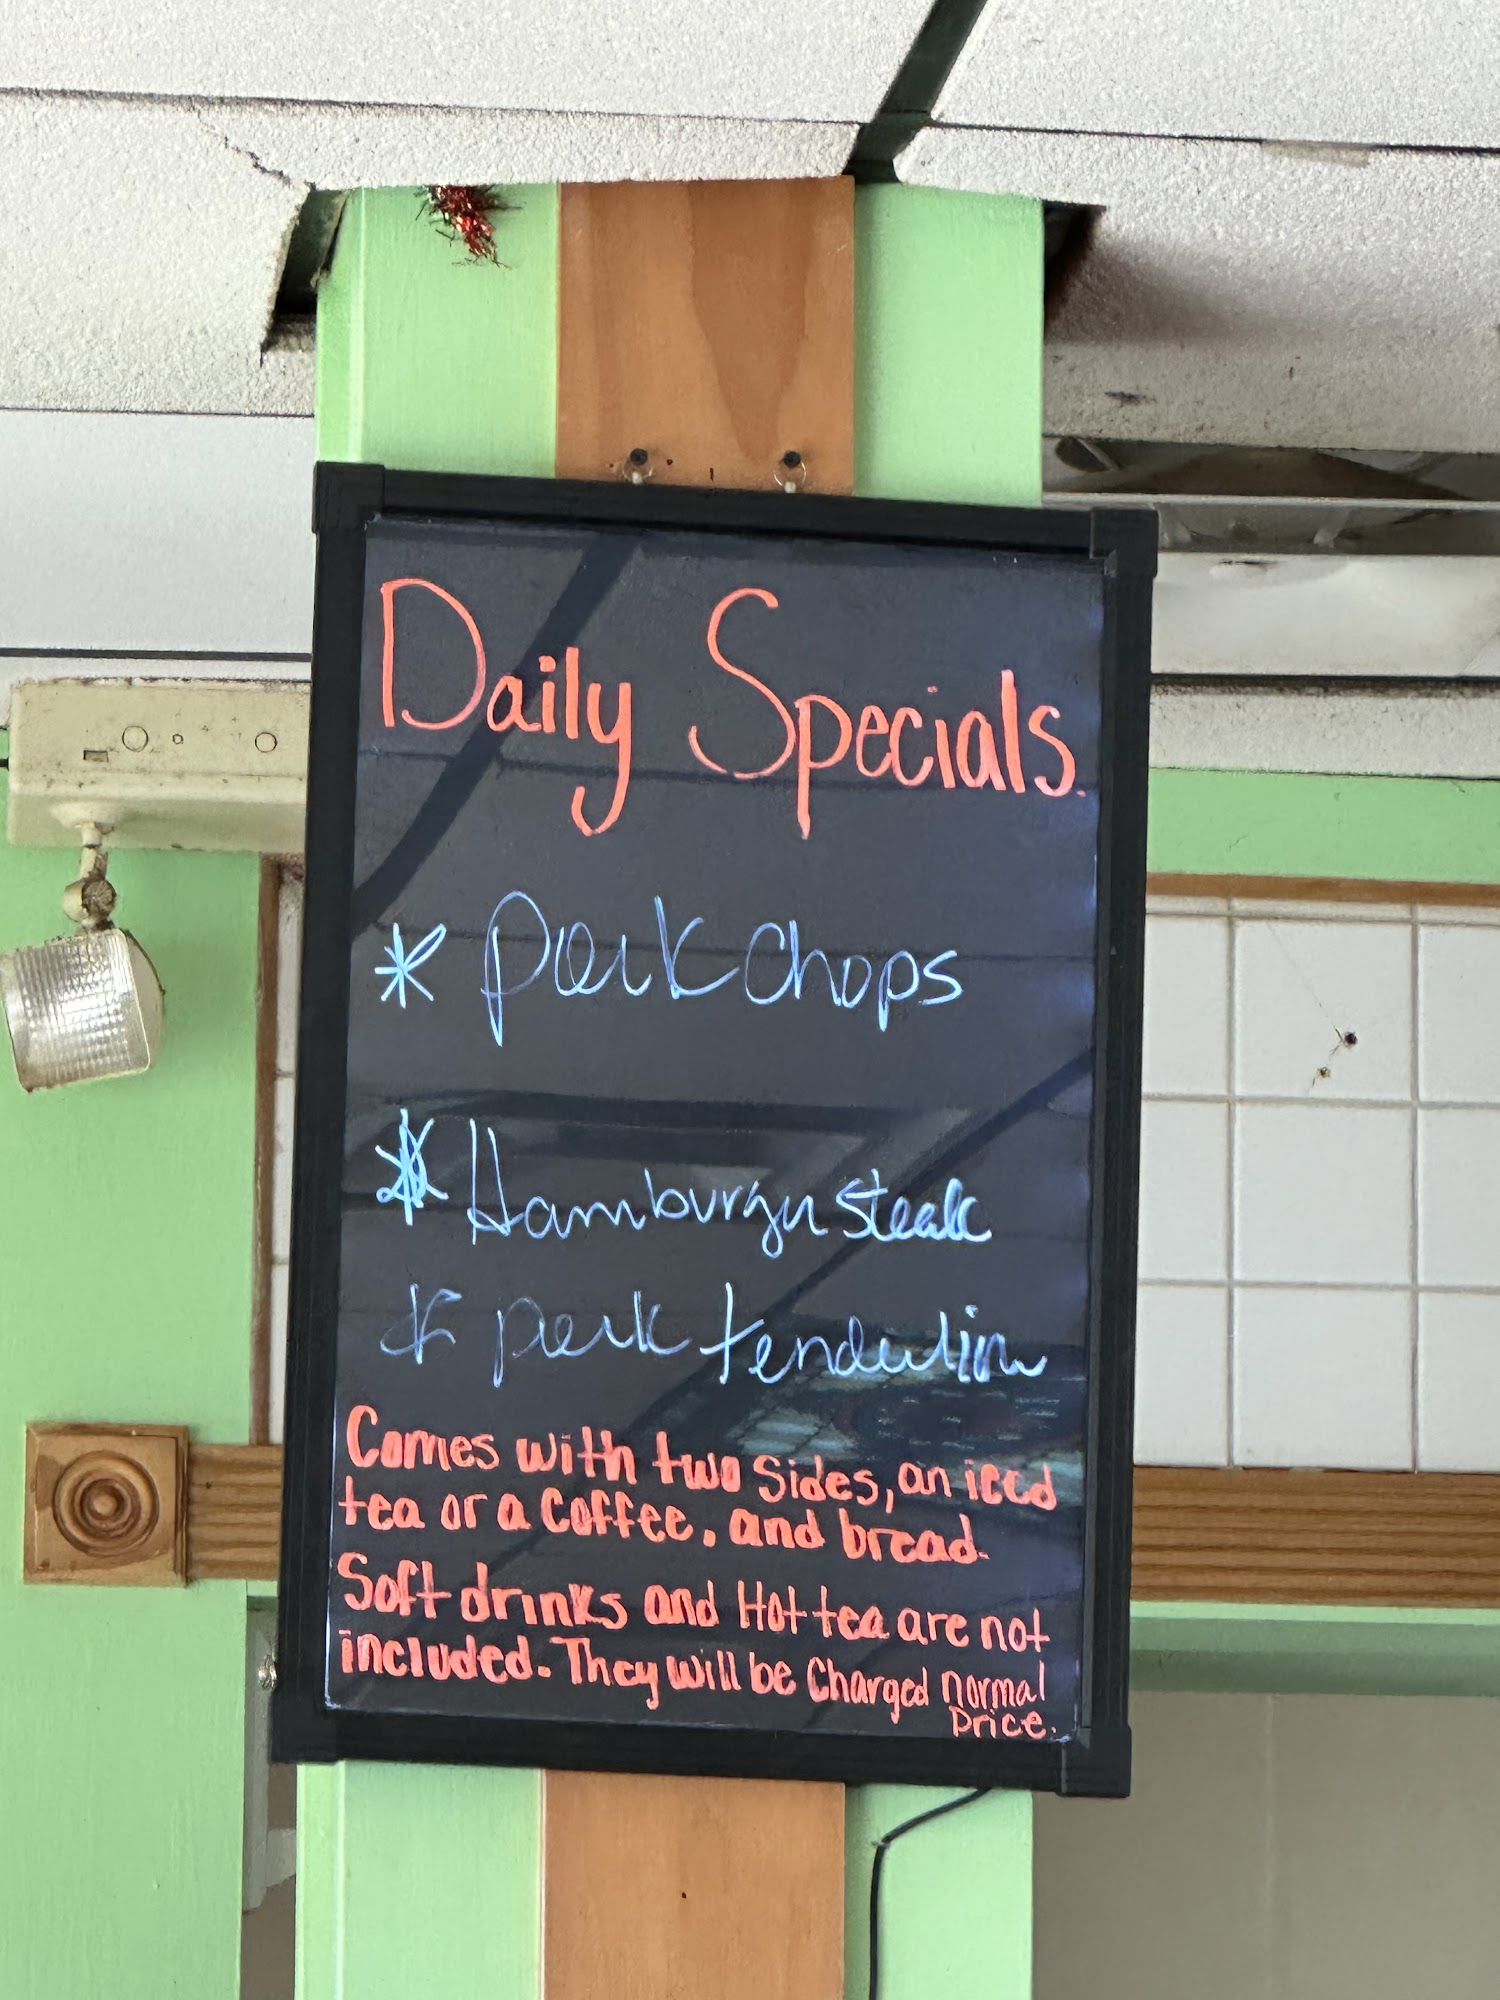 Daily Specials.
* Pork Chops
* Hamburger Steak
* pork tenderlion
Comes with two sides, an iced
tea or a coffee, and bread.
Soft drinks and Hot tea are not
included. They will be charged normal
price.